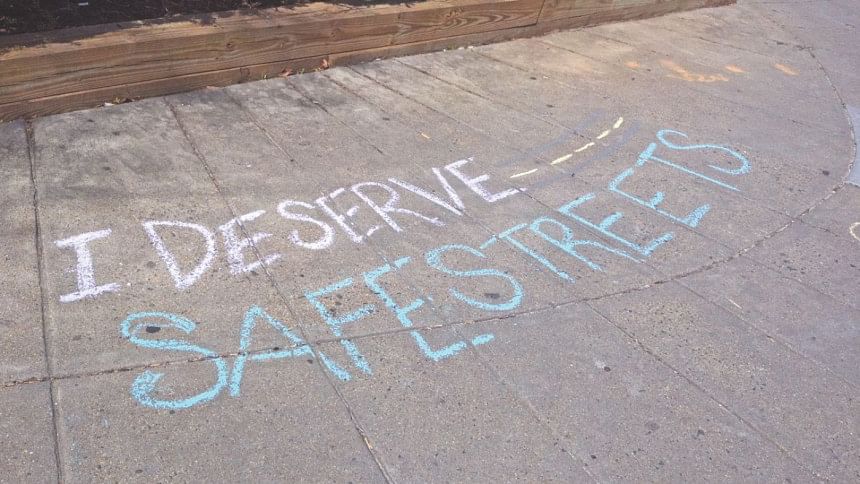 I DESERVE
SAFE STREETS